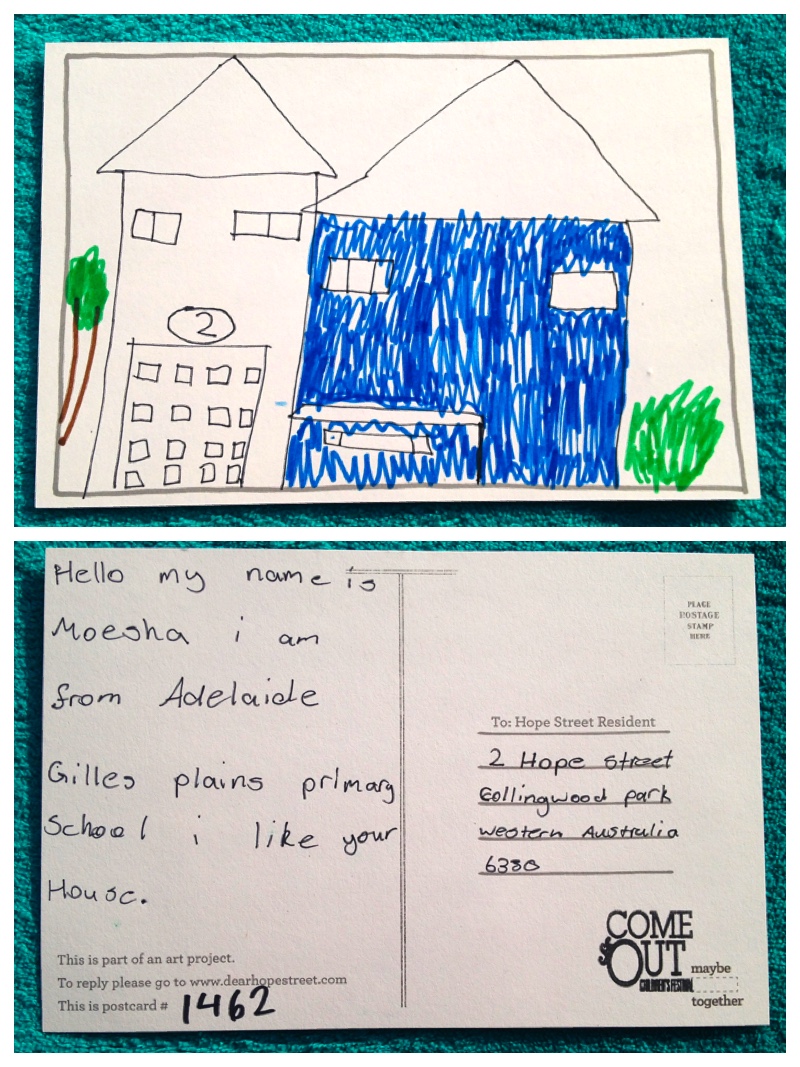 2
Hello my name is
Moesha i am
from Adelaide
Gilles plains primary
School i like your
House.
This is part of an art project.
To reply please go to www.dearhopestreet.com
This is postcard # 1462
PLACE
POSTAGE
STAMP
HERE
To: Hope Street Resident
2 Hope street
Collingwood park
western Australia
6330
COME
OUT
CHILDREN'S FESTIVAL
maybe
together